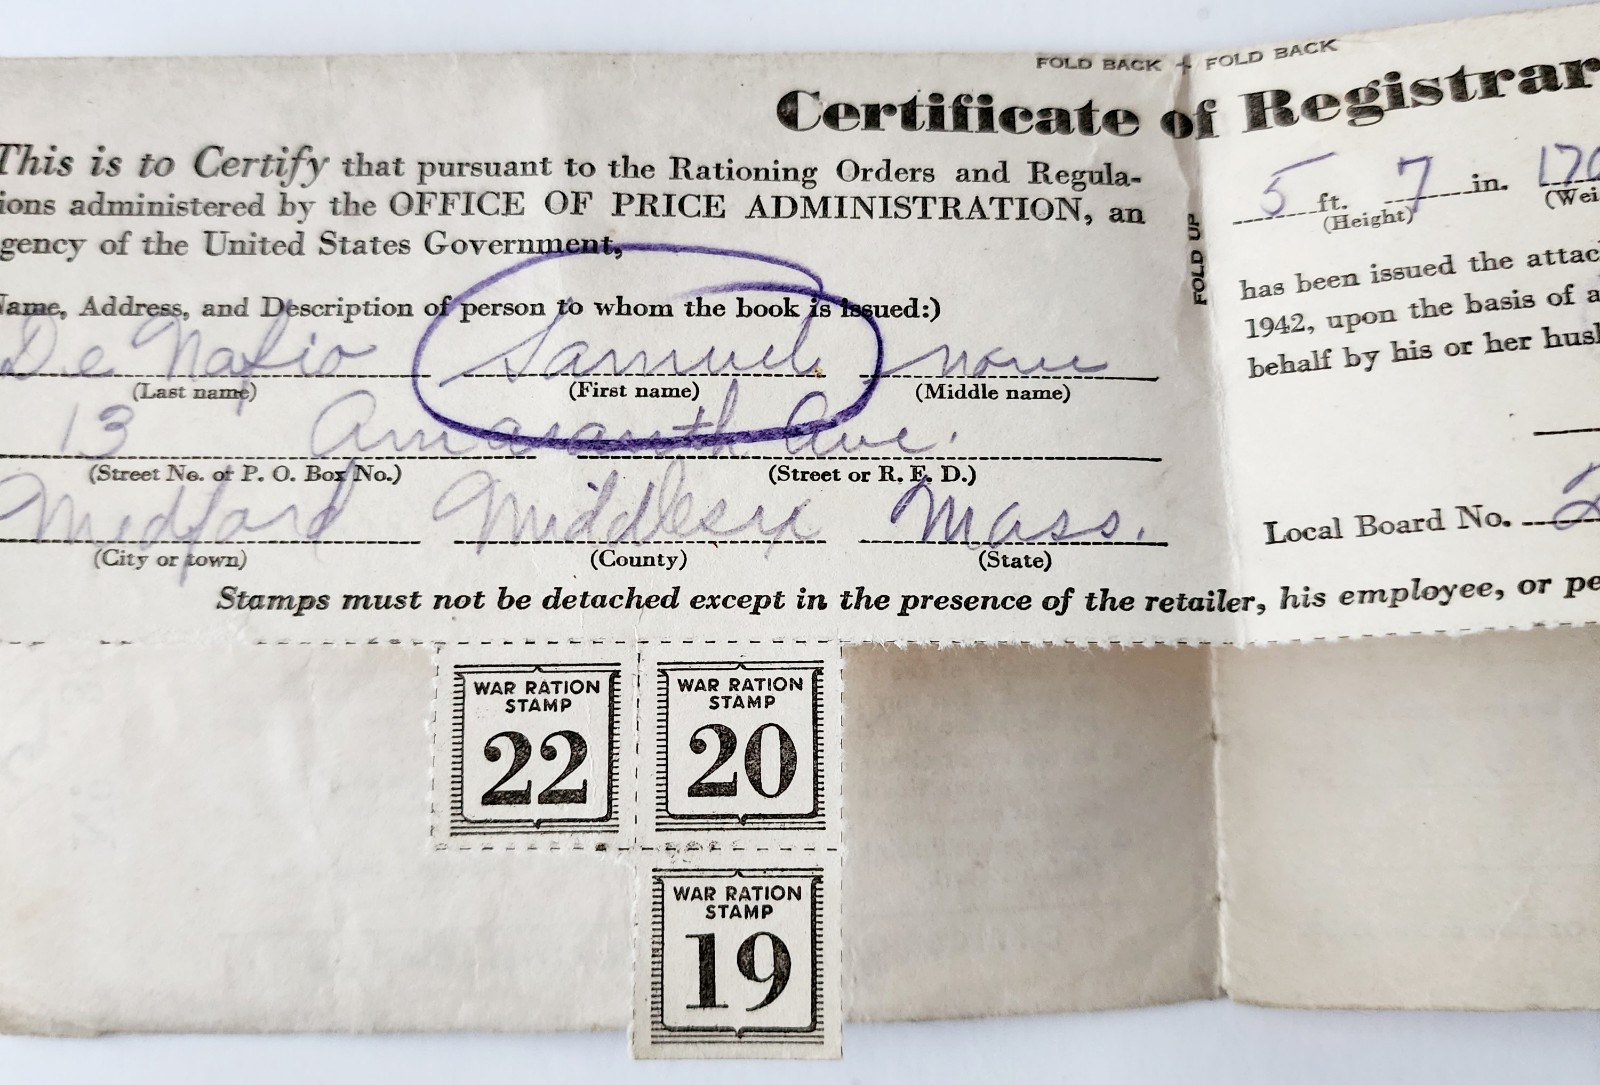 FOLD BACK + FOLD BACK
Certificate of Registrar
This is to Certify that pursuant to the Rationing Orders and Regula-
ions administered by the OFFICE OF PRICE ADMINISTRATION, an
gency of the United States Government,
Name, Address, and Description of person to whom the book is issued:)
De Samuel none
(Last name) (First name) (Middle name)
13 Amaranth Ave.
(Street No. or P. O. Box No.) (Street or R. F. D.)
Medford Middlesex Mass.
(City or town) (County) (State)
FOLD UP
5 ft. 7 in. 170
(Height) (Wei
has been issued the attac
1942, upon the basis of a
behalf by his or her husb
Local Board No. 2
Stamps must not be detached except in the presence of the retailer, his employee, or pe
WAR RATION
STAMP
22
WAR RATION
STAMP
20
WAR RATION
STAMP
19